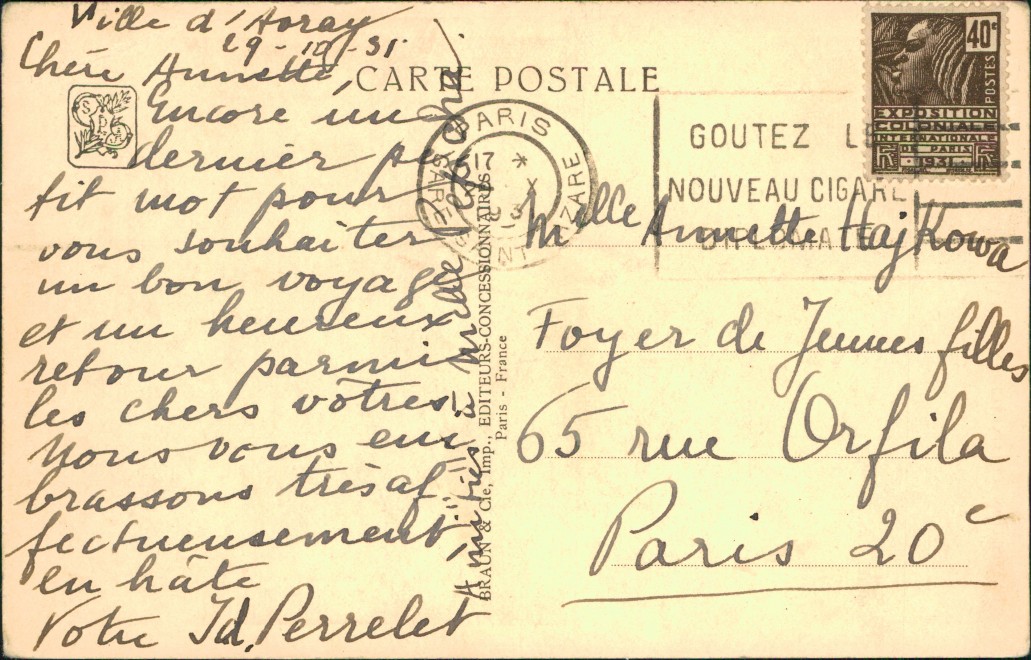 Ville d'Avray
29-10-31.
Chère Annette,
Encore un
dernier pe
tit mot pour
vous souhaiter
un bon voyage
et un heureux
retour parmi
les chers vôtres.
Nous vous em
brassons très af
fectueusement
en hâte
Votre Id. Perrelet
Amitiés à Melle
CARTE POSTALE
BRAUN & Cie, Imp., EDITEURS-CONCESSIONNAIRES
Paris - France
PARIS
GARE ST LAZARE
17 *
X
GOUTEZ LE
NOUVEAU CIGARE
40c
POSTES
EXPOSITION
COLONIALE
INTERNATIONALE
DE PARIS
1931
Melle Annette Hajkowa
Foyer de Jeunes filles
65 rue Orfila
Paris 20e